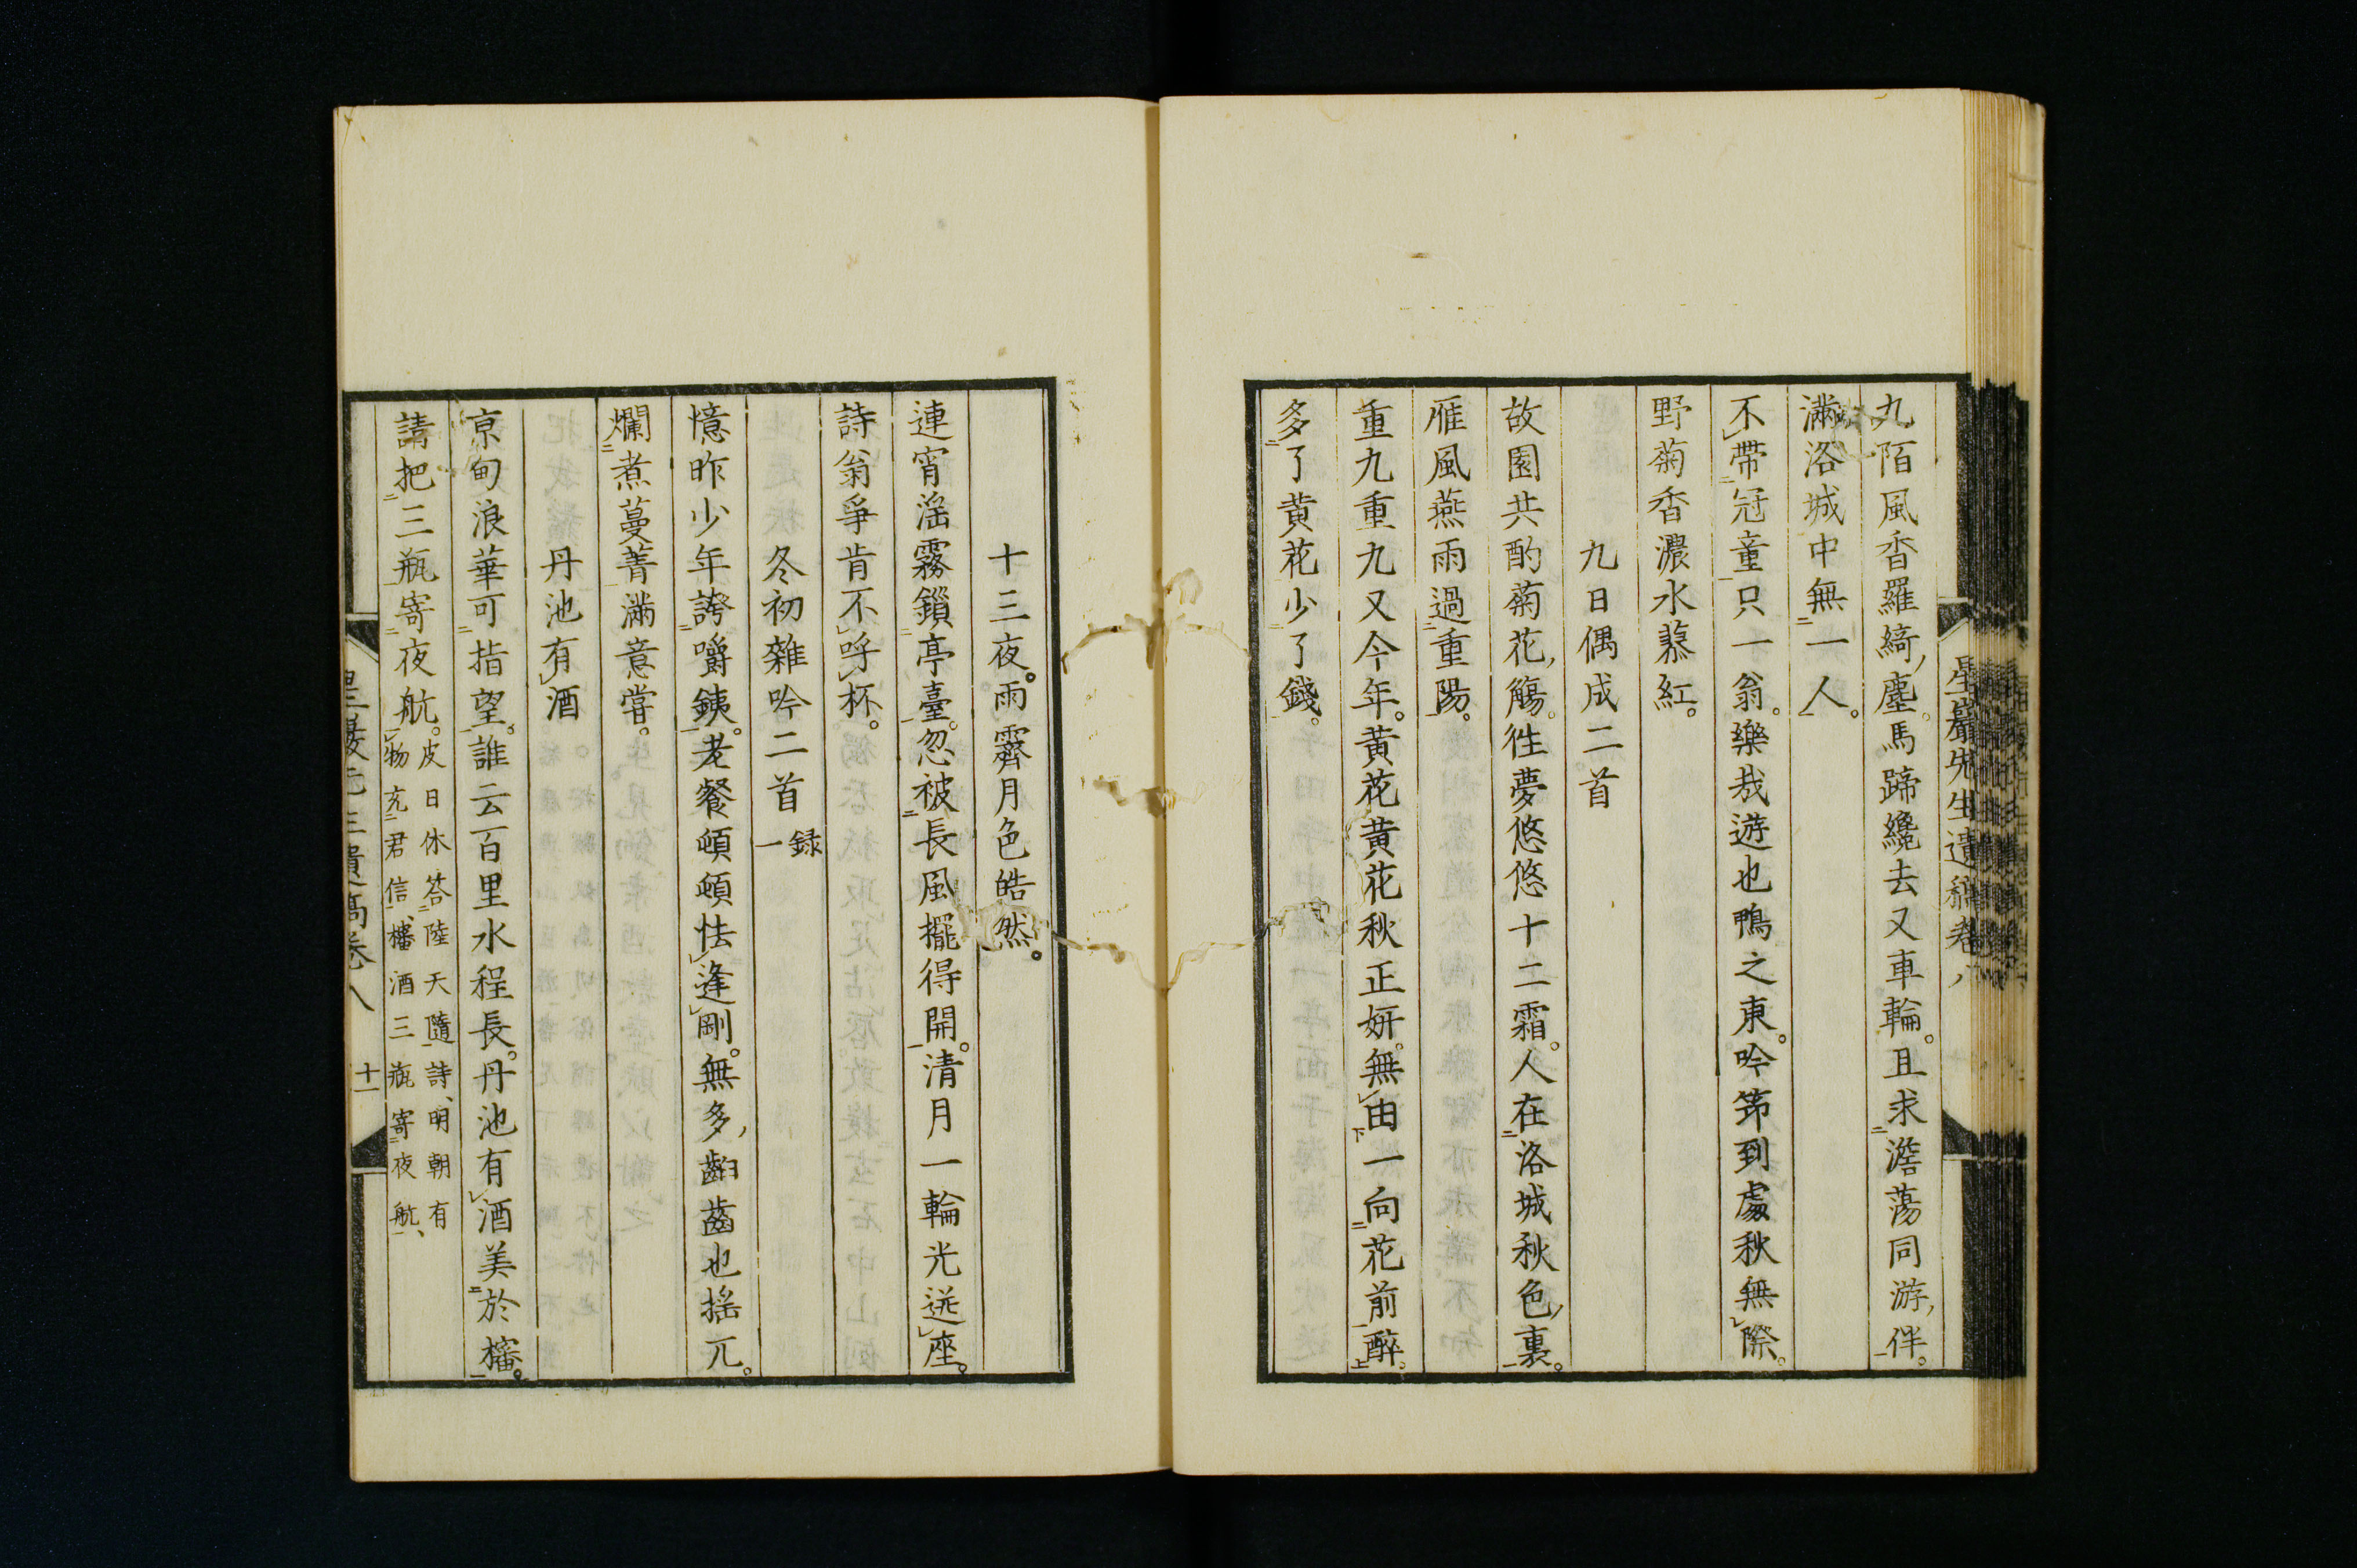 星巖先生遺稿卷八
九陌風香羅綺塵。馬蹄纔去又車輪。且求澹蕩同游伴。
滿洛城中無一人。
不帶冠童只一翁。樂哉遊也鴨之東。吟笻到處秋無際。
野菊香濃水蓼紅。
九日偶成二首
故園共酌菊花觴。徃夢悠悠十二霜。人在洛城秋色裏。
雁風燕雨過重陽。
重九重九又今年。黄花黄花秋正妍。無由一向花前醉。
多了黄花少了錢。
十三夜。雨霽月色皓然。
連宵滛霧鎖亭臺。忽被長風擺得開。清月一輪光送座。
詩翁爭肯不呼杯。
冬初雜吟二首 録一
憶昨少年誇嚼銕。老餐頓頓怯逢剛。無多齨齒也揺兀。
爛煮蔓菁滿意嘗。
丹池有酒
京甸浪華可指望。誰云百里水程長。丹池有酒美於櫧。
請把三瓶寄夜航。皮日休答陸天隨詩、明朝有
物充君信、櫧酒三瓶寄夜航、
星巖先生遺稿卷八 十一